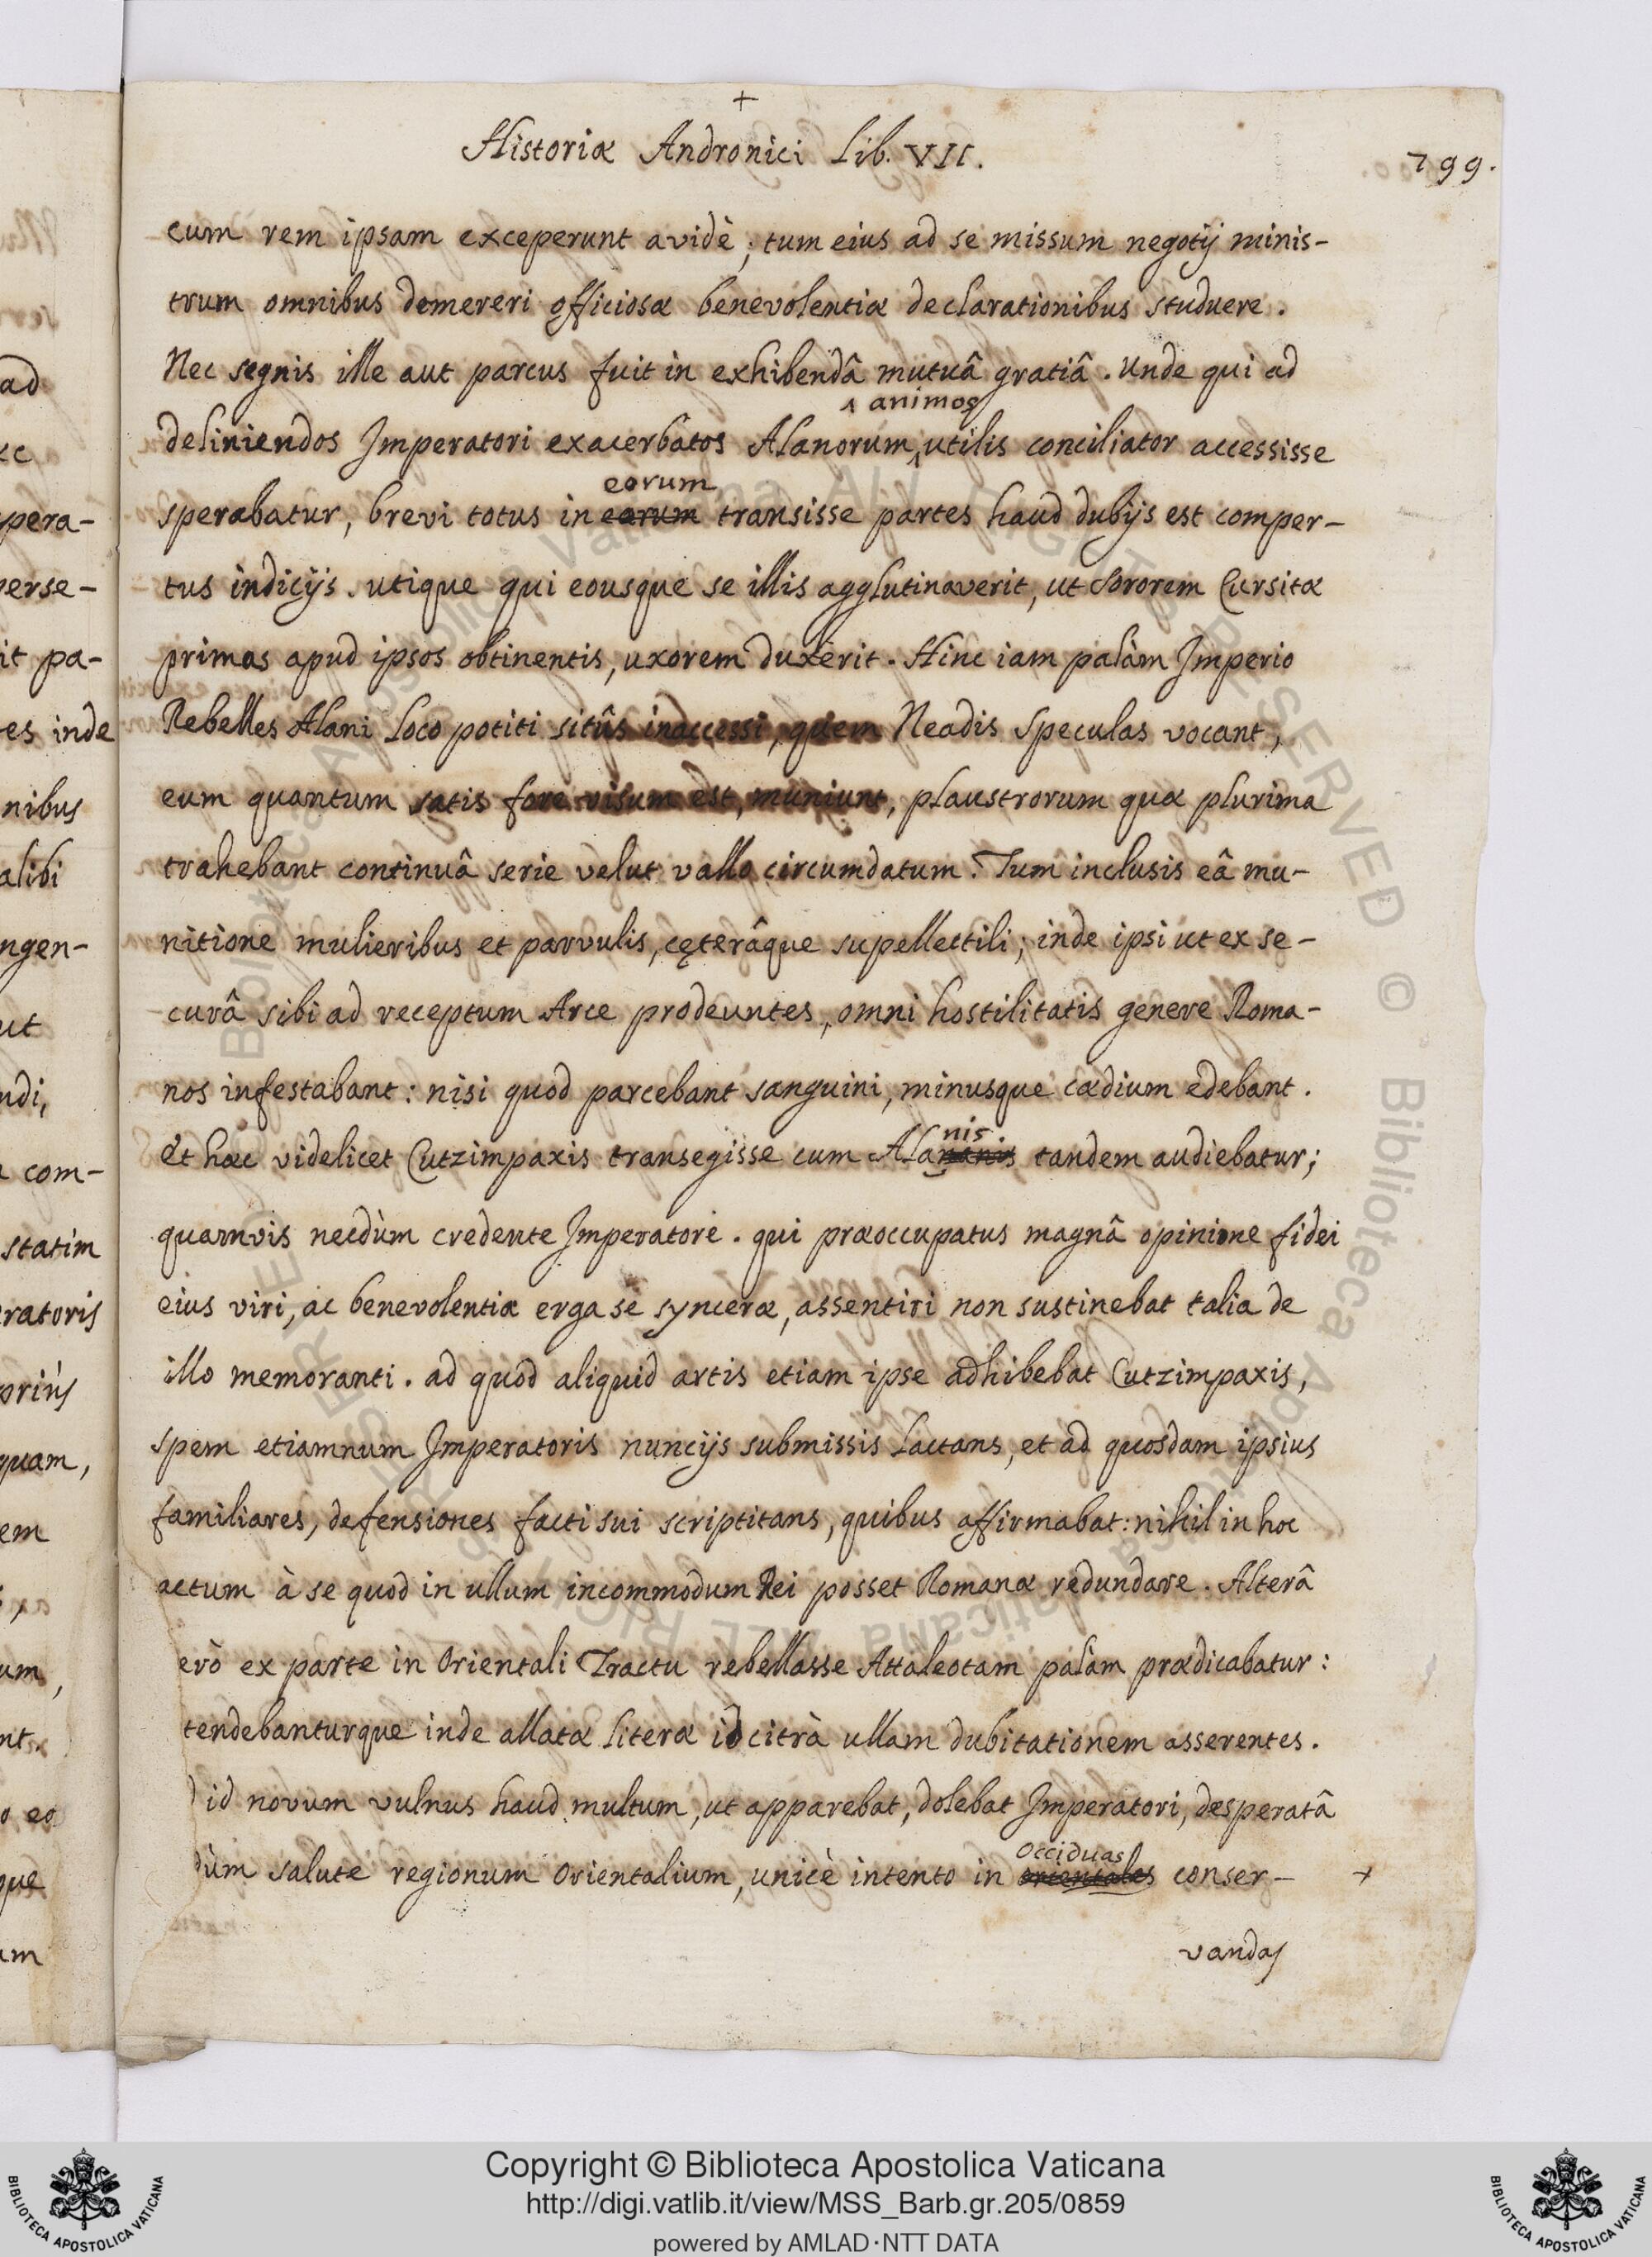 +
Historiæ Andronici Lib. VII.
799.
cum rem ipsam exceperunt avidè; tum eius ad se missum negotij minis-
trum omnibus demereri officiosæ benevolentiæ declarationibus studuere.
Nec segnis ille aut parcus fuit in exhibendâ mutuâ gratiâ. Unde qui ad
animos
deliniendos Imperatori exacerbatos Alanorum utilis conciliator accessisse
eorum
sperabatur, brevi totus in earum transisse partes haud dubijs est comper-
tus indicijs. utique qui eousque se illis agglutinaverit, ut Sororem Cursitæ
primas apud ipsos obtinentis, uxorem duxerit. Hinc iam palàm Imperio
Rebelles Alani loco potiti sitûs inaccessi, quem Neadis Speculas vocant,
eum quantum satis fore visum est, muniunt, plaustrorum quæ plurima
trahebant continuâ serie velut vallo circumdatum. Tum inclusis eâ mu-
nitione mulieribus et parvulis, cęterâque supellectili; inde ipsi ut ex se-
curâ sibi ad receptum Arce prodeuntes, omni hostilitatis genere Roma-
nos infestabant: nisi quod parcebant sanguini, minusque cædium edebant.
nis
Et hæc videlicet Cutzimpaxis transegisse cum Ala tandem audiebatur;
quamvis necdùm credente Imperatore. qui præoccupatus magnâ opinione fidei
eius viri, ac benevolentiæ erga se synceræ, assentiri non sustinebat talia de
illo memoranti. ad quod aliquid artis etiam ipse adhibebat Cutzimpaxis,
spem etiamnum Imperatoris nuncijs submissis lactans, et ad quosdam ipsius
familiares, defensiones facti sui scriptitans, quibus affirmabat: nihil in hoc
actum à se quod in ullum incommodum Rei posset Romanæ redundare. Alterâ
erò ex parte in Orientali Tractu rebellasse Attaleotam palàm prædicabatur:
tendebanturque inde allatæ literæ id citrà ullam dubitationem asserentes.
d id novum vulnus haud multum, ut apparebat, dolebat Imperatori, desperatâ
occiduas
dùm salute regionum Orientalium, unicè intento in orientales conser- +
vandas
ad
pera-
perse-
it pa-
es inde
nibus
alibi
ngen-
ut
ndi,
com-
statim
ratoris
priùs
quam,
em
um,
nt
o eo
que
um
Copyright © Biblioteca Apostolica Vaticana
http://digi.vatlib.it/view/MSS_Barb.gr.205/0859
powered by AMLAD·NTT DATA
BIBLIOTECA APOSTOLICA VATICANA
BIBLIOTECA APOSTOLICA VATICANA